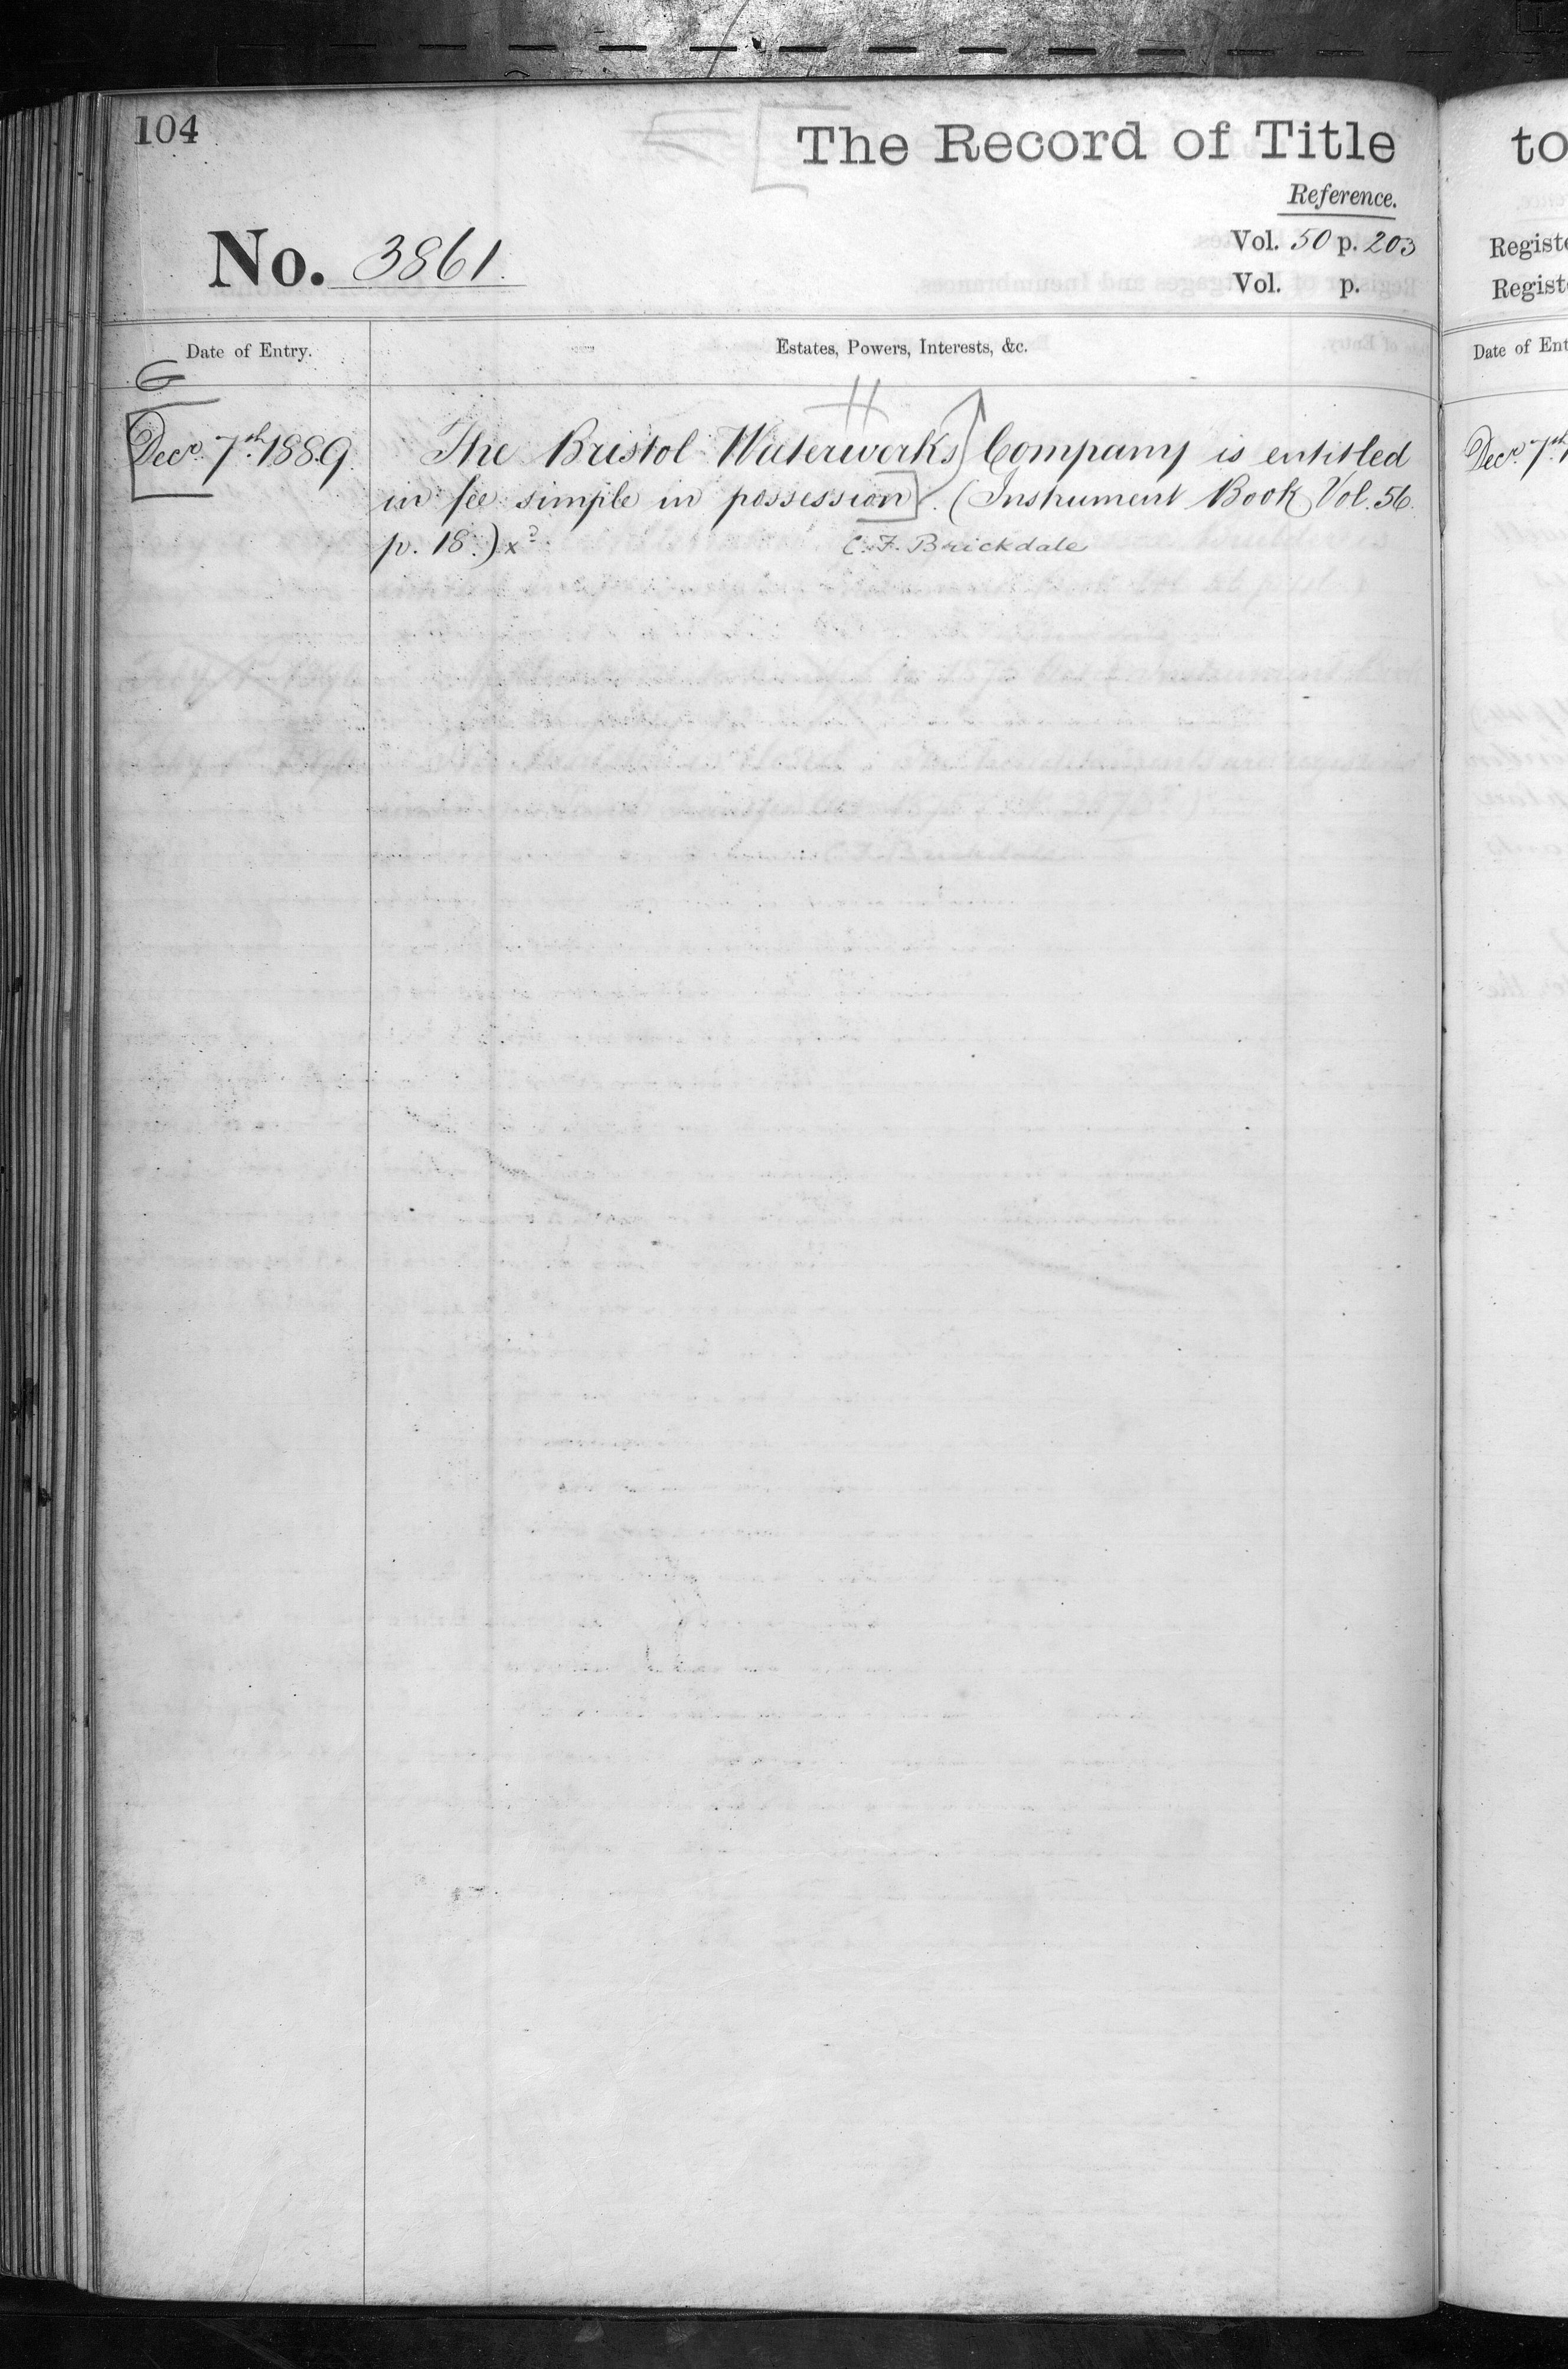 104
The Record of Title
Reference.
No. 3861.
Vol. 50 p. 203
Vol. p.
Date of Entry.
Estates, Powers, Interests, &c.
G
H
Decr. 7th. 1889.
The Bristol Waterworks Company is entitled
in fee simple in possession. (Instrument Book Vol. 56.
p. 18.)
C. F. Brickdale
to
Registe
Registe
Date of Ent
Decr. 7th